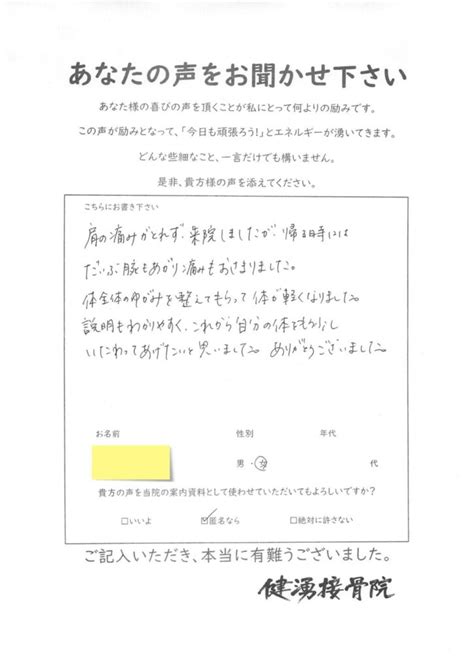 あなたの声をお聞かせ下さい
あなた様の喜びの声を頂くことが私にとって何よりの励みです。
この声が励みとなって、「今日も頑張ろう!」とエネルギーが湧いてきます。
どんな些細なこと、一言だけでも構いません。
是非、貴方様の声を添えてください。
こちらにお書き下さい
肩の痛みがとれず、来院しましたが、帰る時には
だいぶ腕もあがり痛みもおさまりました。
体全体のゆがみを整えてもらって体が軽くなりました。
説明もわかりやすく、これから自分の体をもう少し
いたわってあげたいと思いました。ありがとうございました。
お名前 性別 年代
男・女 代
貴方の声を当院の案内資料として使わせていただいてもよろしいですか?
□いいよ ☑匿名なら □絶対に許さない
ご記入いただき、本当に有難うございました。
健湧接骨院